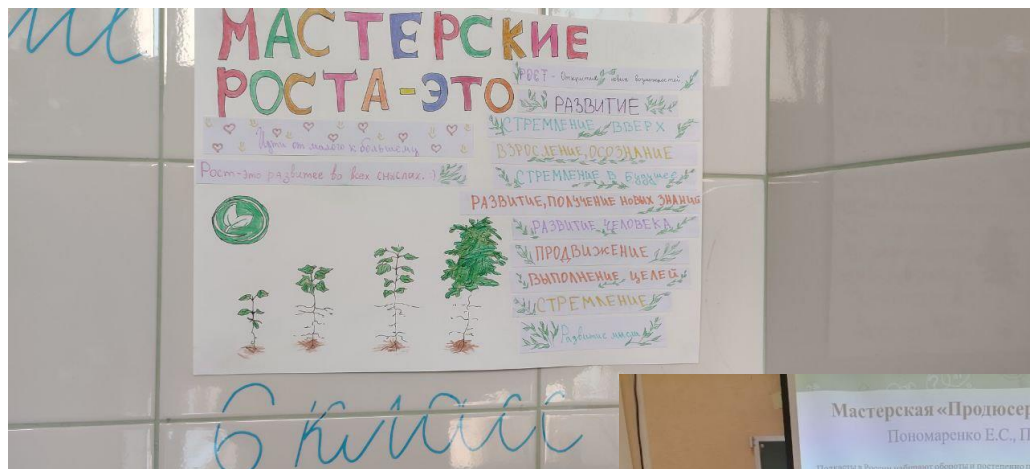 МАСТЕРСКИЕ
РОСТА-ЭТО
Пути от малого к большему
Рост-это развитее во всех смыслах. :)
РОСТ - Открытие новых возможностей
РАЗВИТИЕ
СТРЕМЛЕНИЕ ВВЕРХ
ВЗРОСЛЕНИЕ, ОСОЗНАНИЕ
СТРЕМЛЕНИЕ В БУДУЩЕЕ
РАЗВИТИЕ, ПОЛУЧЕНИЕ НОВЫХ ЗНАНИЙ
РАЗВИТИЕ ЧЕЛОВЕКА
ПРОДВИЖЕНИЕ
ВЫПОЛНЕНИЕ ЦЕЛЕЙ
СТРЕМЛЕНИЕ
Развитие
6 класс
Мастерская «Продюсер
Пономаренко Е.С., П